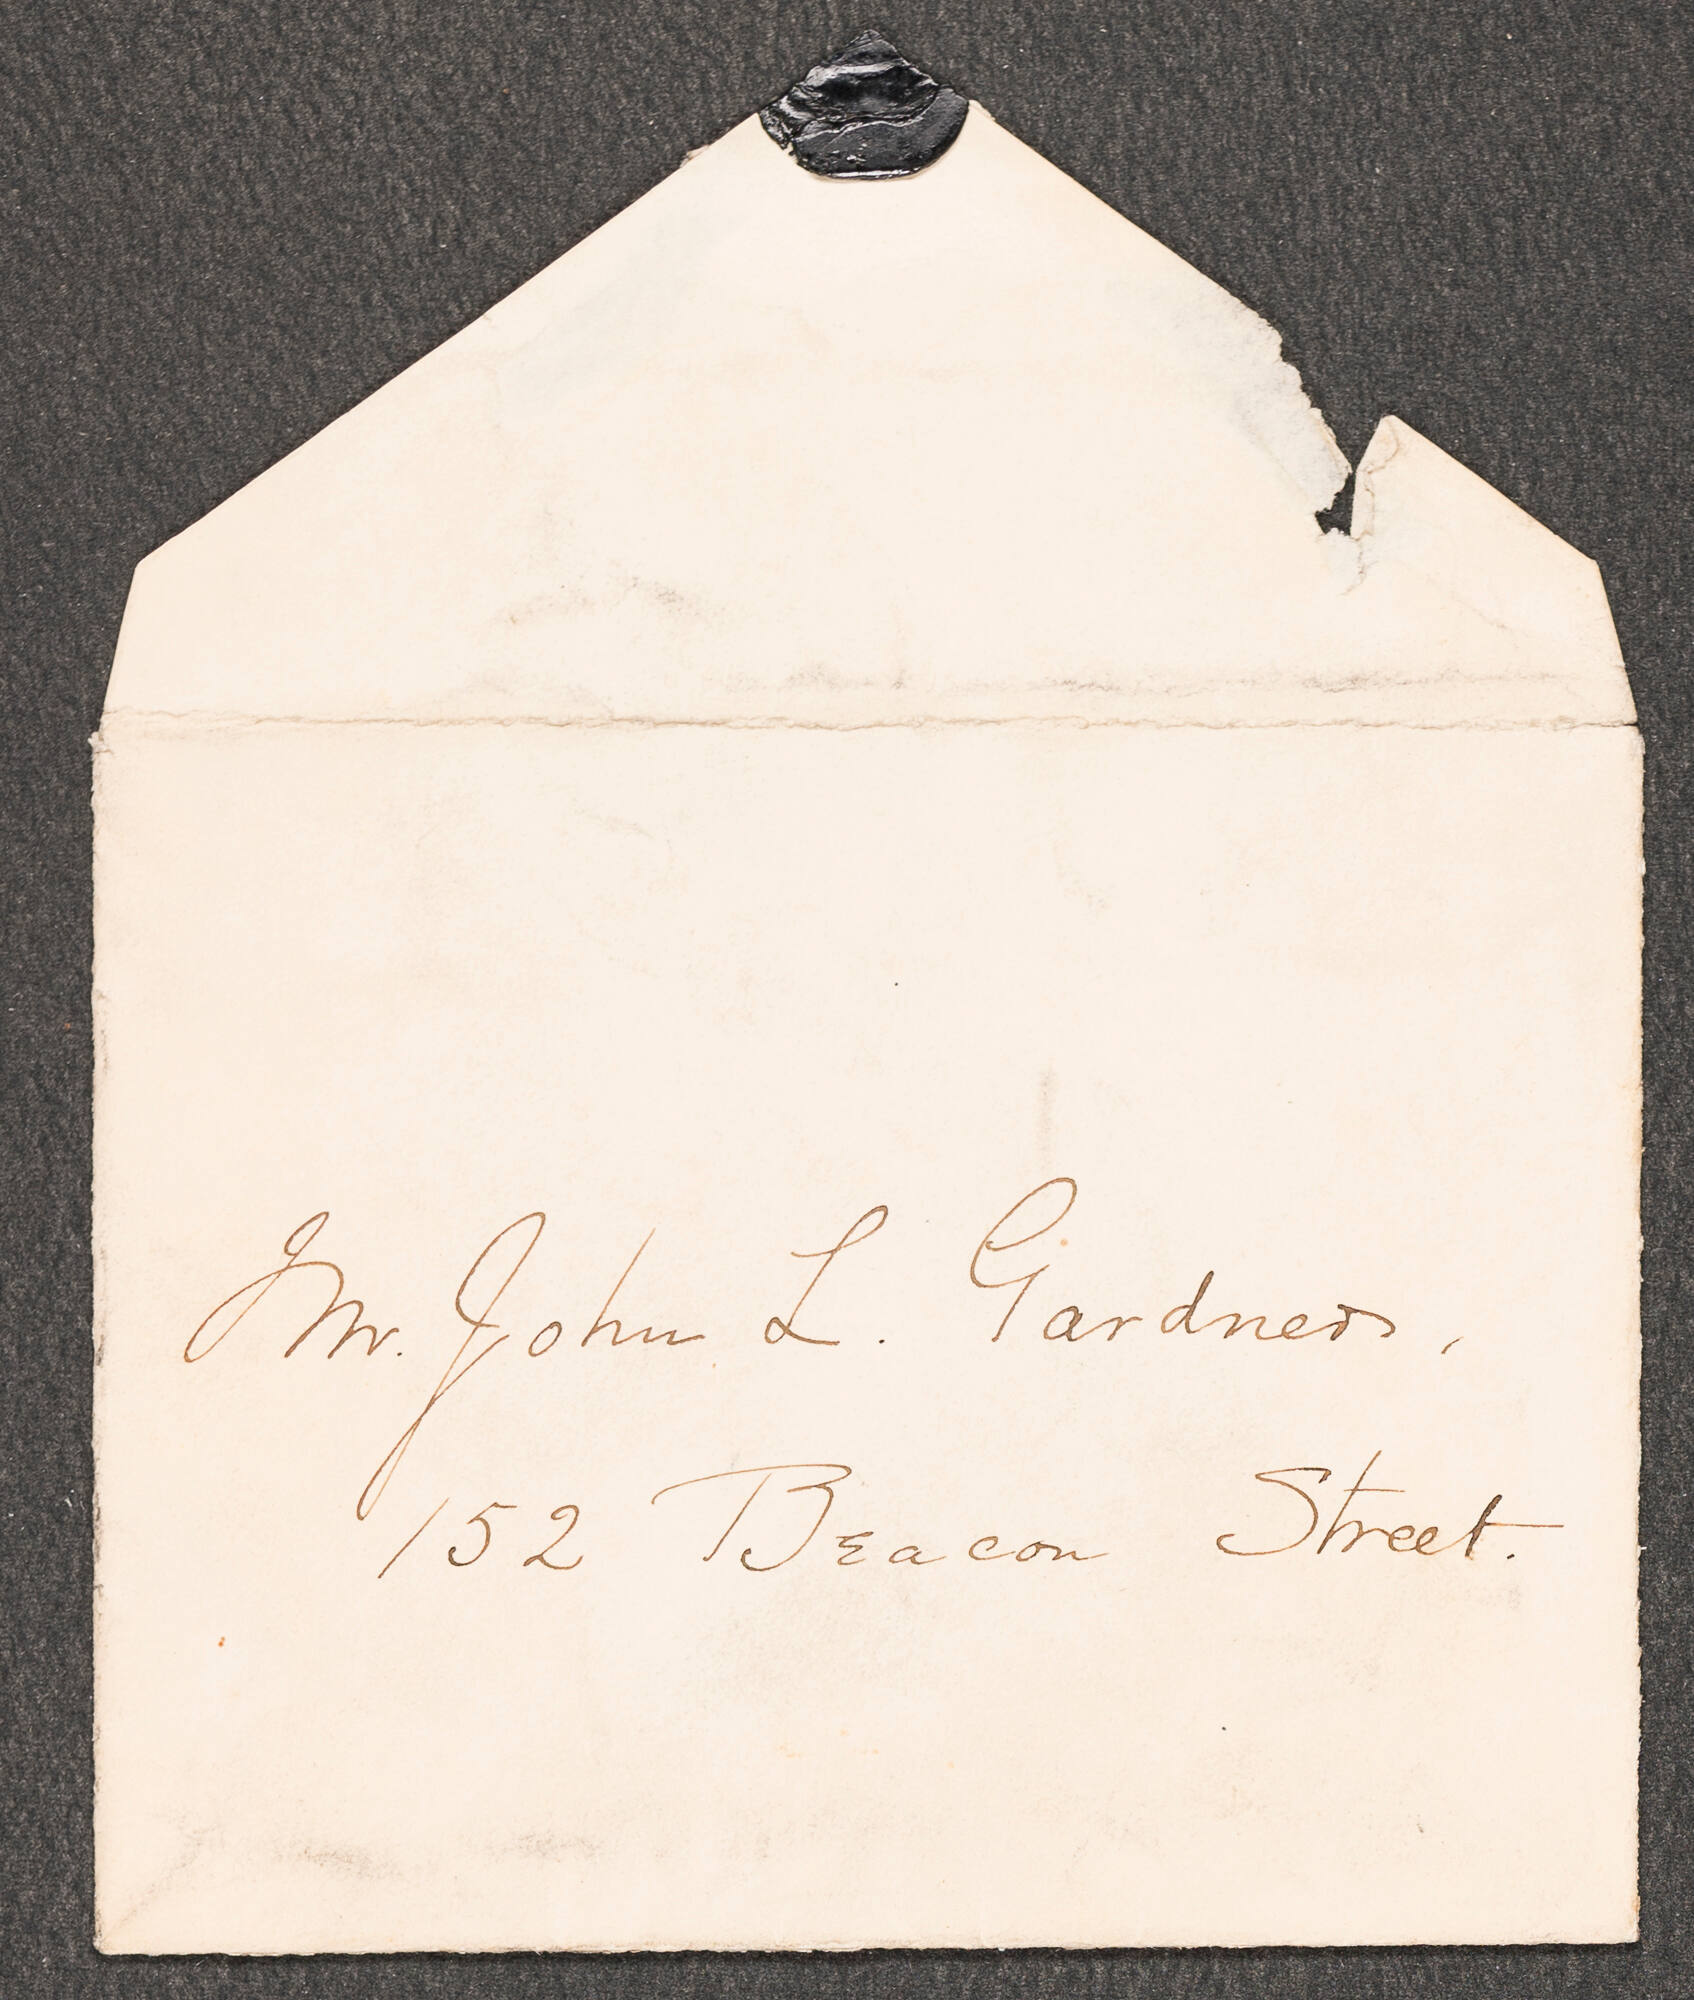 Mr. John L. Gardner,
152 Beacon Street.